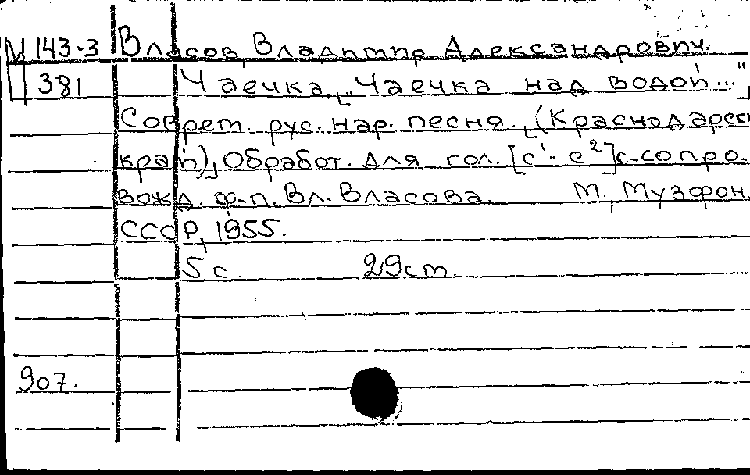 М 143-3 Власов, Владимир Александрович.
381 Чаечка. "Чаечка над водой..."
Соврем. рус. нар. песня. (Краснодарск
край), Обработ. для гол. [c¹-e²] с сопро
вожд. ф-п. Вл. Власова. М., Музфонд
СССР, 1955.
5 с. 29 cm.
907.